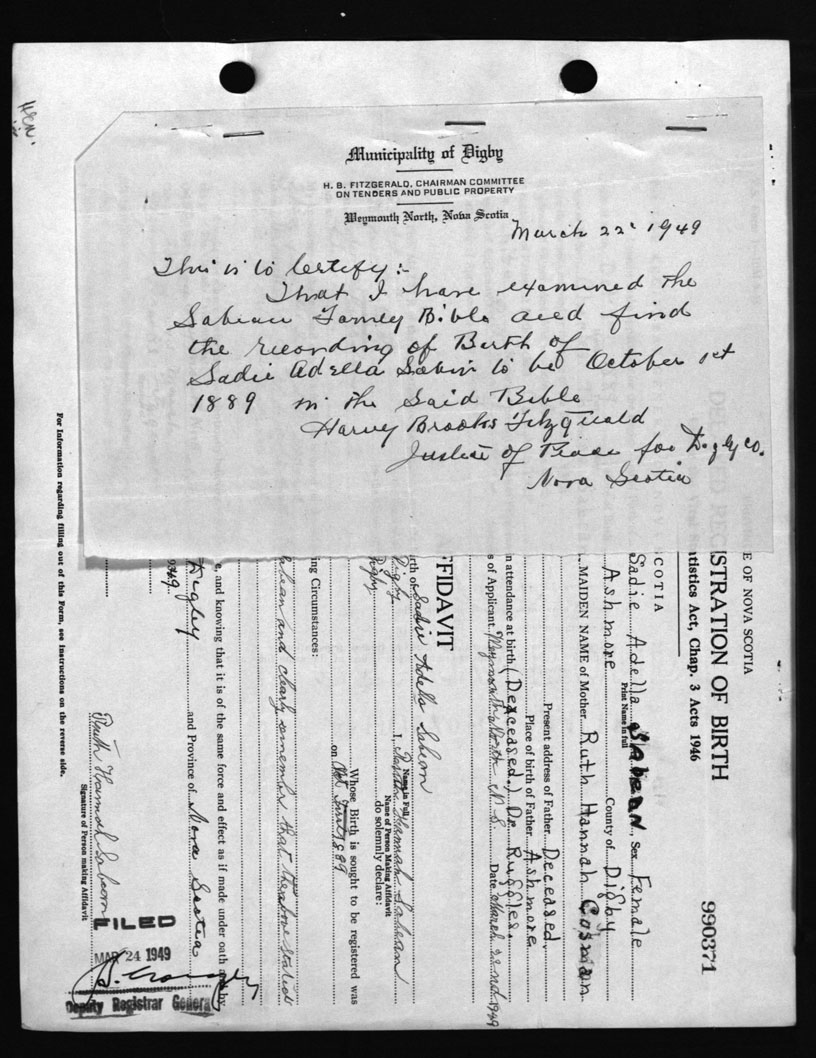 Municipality of Digby
H. B. FITZGERALD, CHAIRMAN COMMITTEE
ON TENDERS AND PUBLIC PROPERTY
Weymouth North, Nova Scotia
March 22 1949
This is to Certify:-
That I have examined the
Sabean Family Bible and find
the recording of Birth of
Sadie Adella Sabin to be October 1st
1889 in the Said Bible
Harvey Brooks Fitzgerald
Justice of Peace for Digby Co.
Nova Scotia
E OF NOVA SCOTIA
ISTRATION OF BIRTH
990371
tatistics Act, Chap. 3 Acts 1946
SCOTIA
Sadie Adella Sabean Sex Female
Print Name in full
Ashmore County of Digby
MAIDEN NAME of Mother Ruth Hannah Cosman
Present address of Father Deceased.
Place of birth of Father Ashmore
n attendance at birth (Deaceased.) Dr. Ruggles.
s of Applicant Weymouth North N.S. Date March 22nd 1949
FFIDAVIT
rth of Sadie Adella Sabean
Name in Full
Digby I, Hannah Sabean
Name of Person Making Affidavit
Digby do solemnly declare:
Whose Birth is sought to be registered was
on Oct First 1889
ing Circumstances:
abean and clearly remember that the above stated
e, and knowing that it is of the same force and effect as if made under oath and by
Digby and Province of Nova Scotia
949
Ruth Hannah Sabean
Signature of Person making Affidavit
For Information regarding filling out of this Form, see instructions on the reverse side.
FILED
MAR 24 1949
Deputy Registrar General